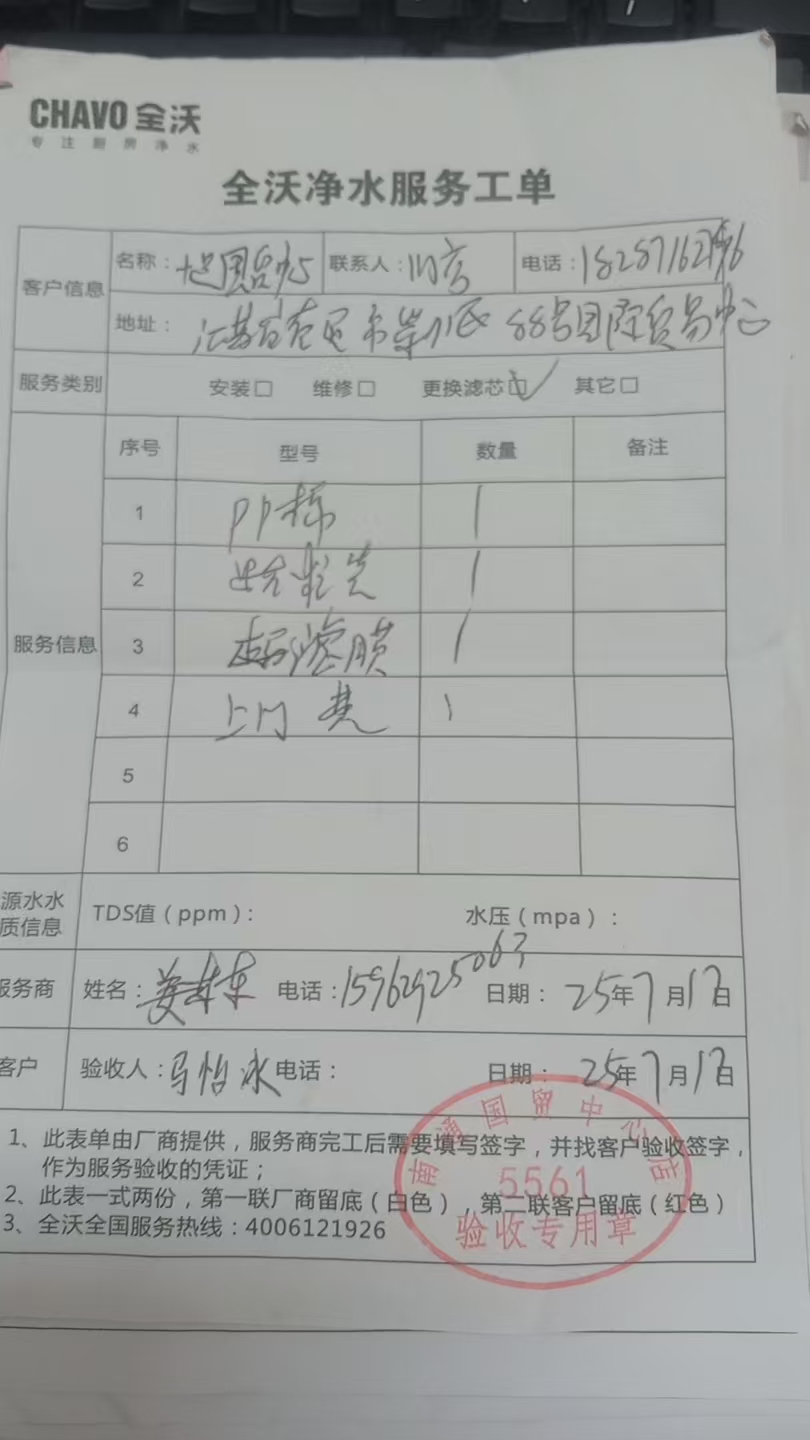 CHAVO 全沃
专注厨房净水
全沃净水服务工单
客户信息
名称： 联系人： 电话：
地址： 江苏省 市崇川区 88号国际贸易中心
服务类别 安装□ 维修□ 更换滤芯□✓ 其它□
服务信息
序号 型号 数量 备注
1 PP棉 1
2 1
3 滤膜 1
4 上门费 1
5
6
源水水质信息 TDS值（ppm）： 水压（mpa）：
服务商 姓名：姜 东 电话：15962925063 日期：25年7月17日
客户 验收人：马怡冰 电话： 日期：25年7月17日
1、此表单由厂商提供，服务商完工后需要填写签字，并找客户验收签字，
作为服务验收的凭证；
2、此表一式两份，第一联厂商留底（白色），第二联客户留底（红色）
3、全沃全国服务热线：4006121926
南通国贸中心店
5561
验收专用章